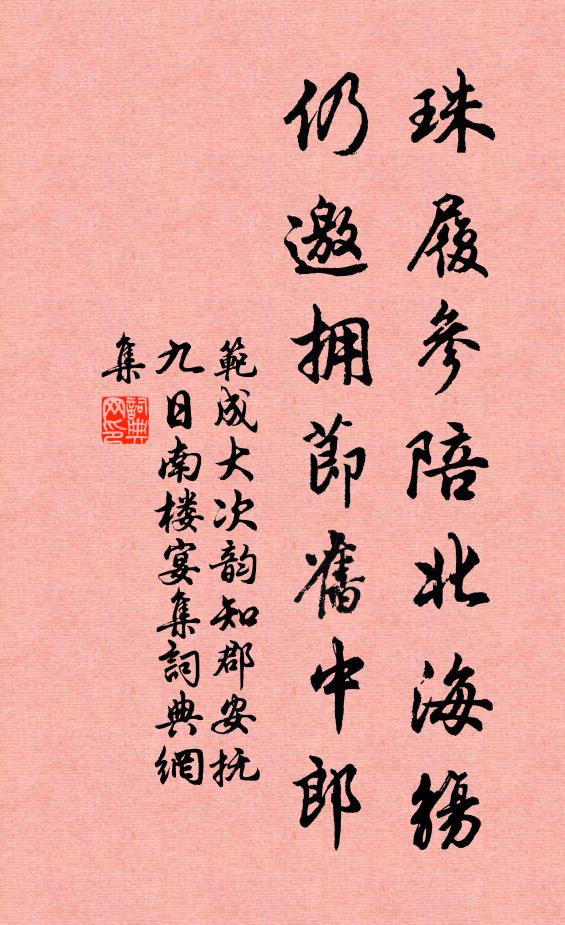 珠履參陪北海觴
仍邀拥節舊中郎
範成大次韵知郡安抚
九日南楼宴集詞典網
集
詞典網印